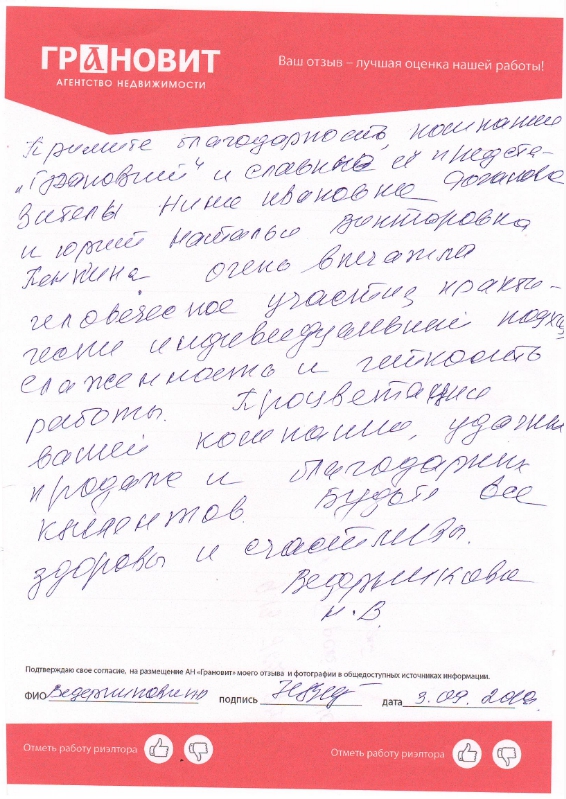 ГРАНОВИТ
АГЕНТСТВО НЕДВИЖИМОСТИ
Ваш отзыв – лучшая оценка нашей работы!
Примите благодарность, компании
и славные её предста-
вители Нине Ивановне
и юрист Наталье Викторовна
Пенкина очень впечатлил
человеческое участие, практи-
чески индивидуальный подход
слаженность и чёткость
работы. Процветания
вашей компании, удачных
продаж и благодарных
клиентов. Будьте все
здоровы и счастливы.
Ведерникова
Н.В.
Подтверждаю свое согласие, на размещение АН «Грановит» моего отзыва и фотографии в общедоступных источниках информации.
ФИО подпись дата 3.09.
Отметь работу риэлтора
Отметь работу риэлтора